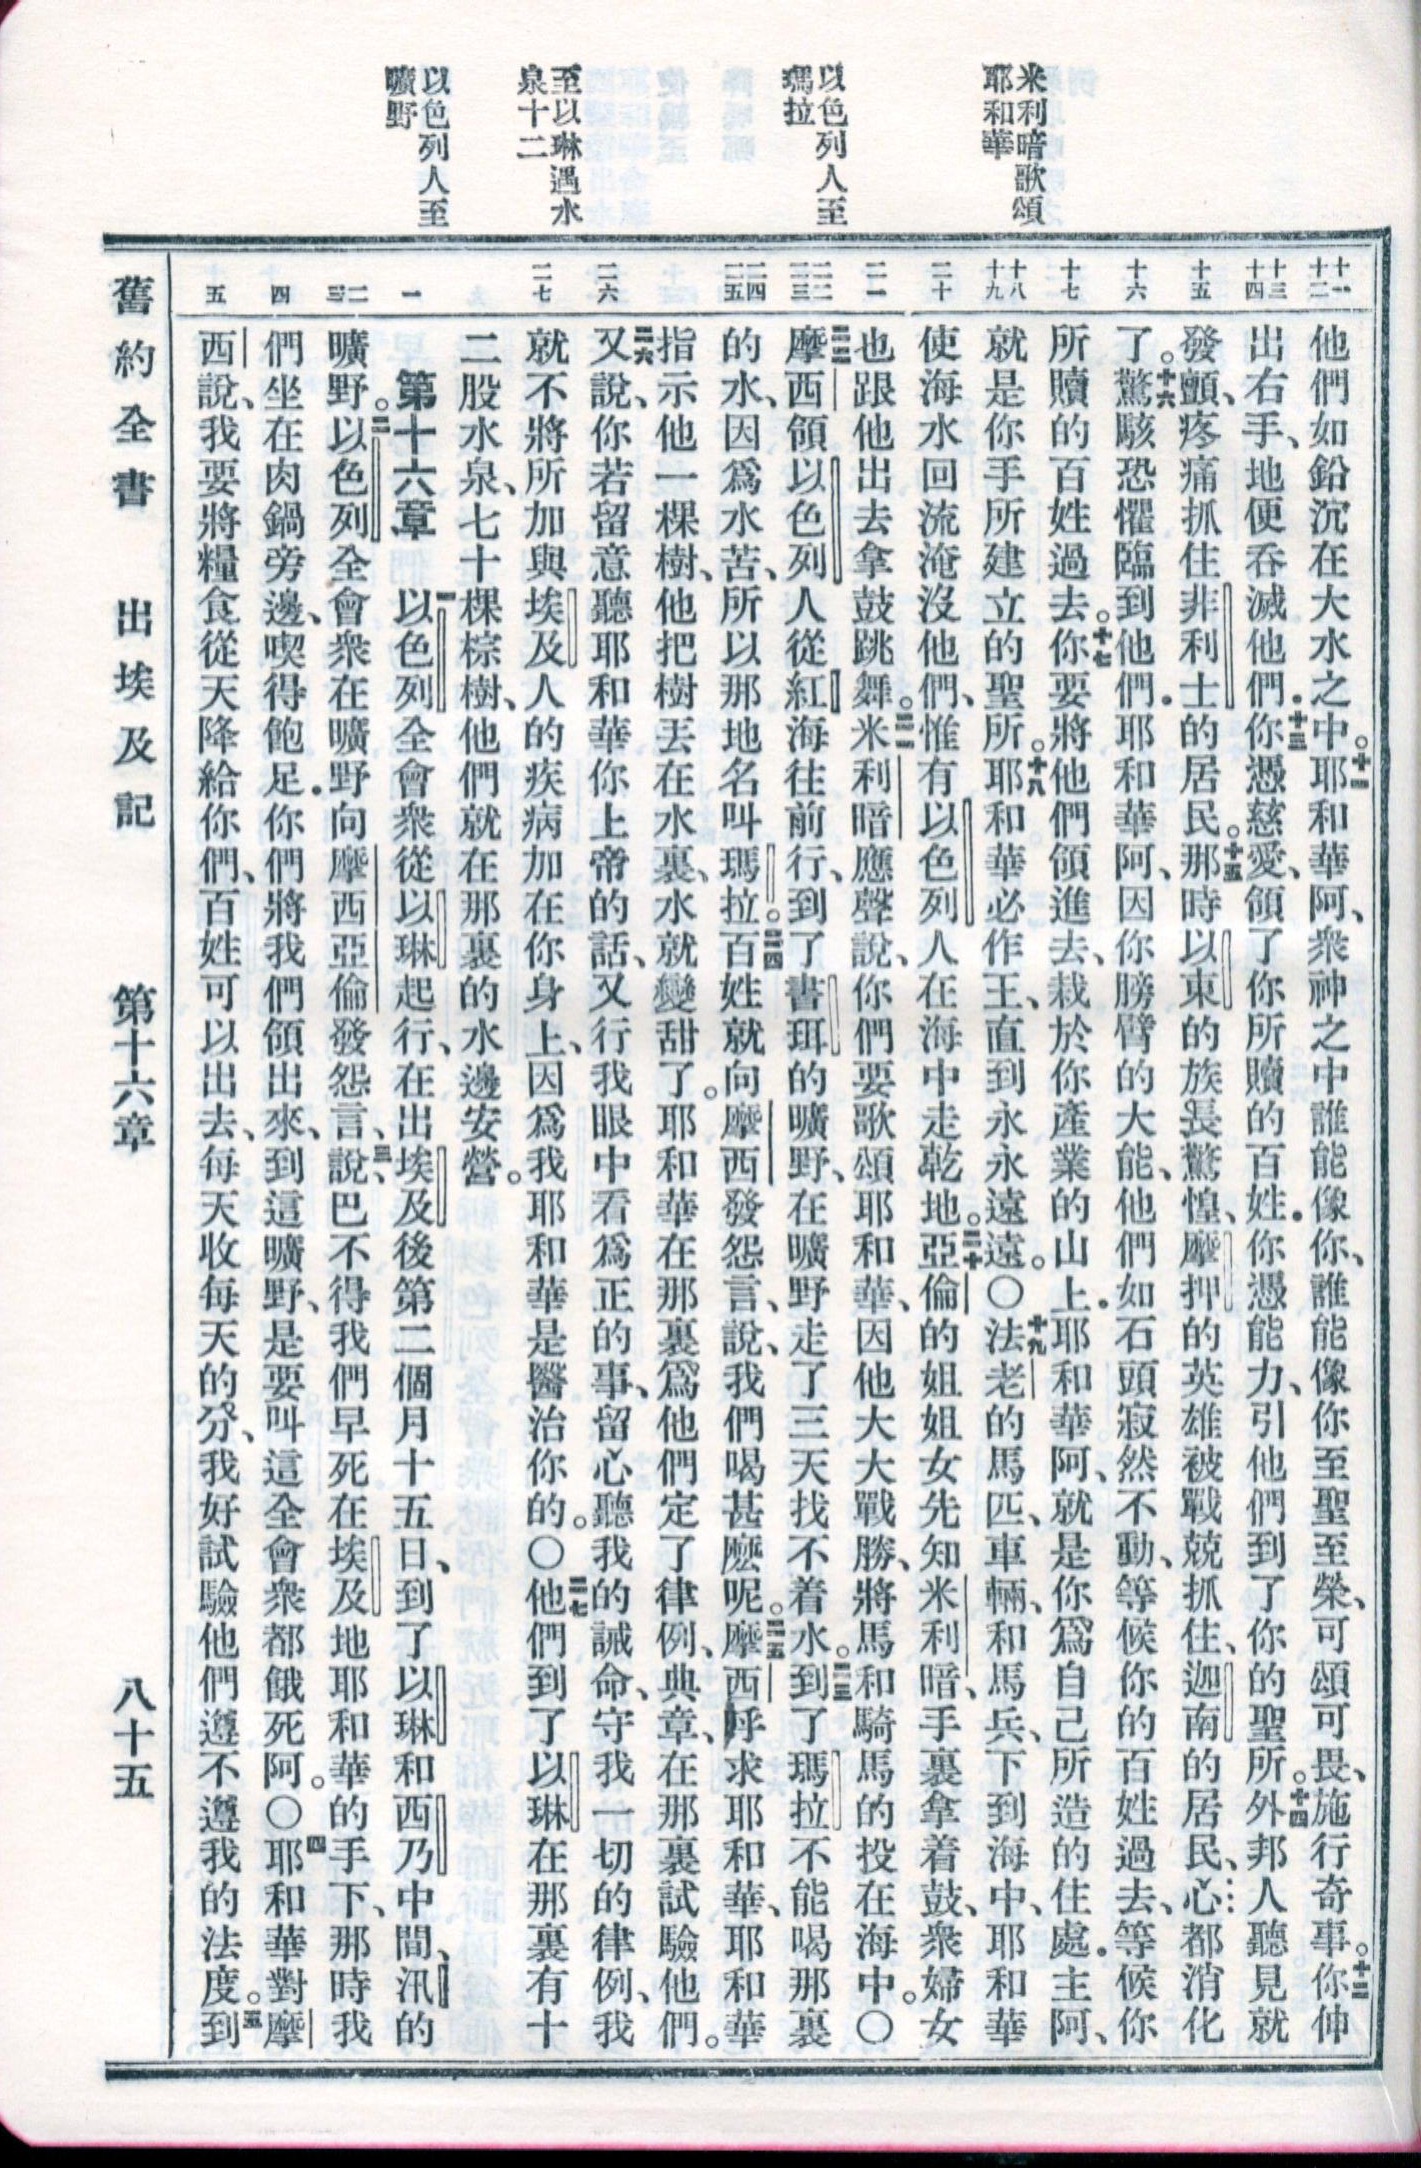 米利暗歌頌
耶和華
以色列人至
瑪拉
至以琳遇水
泉十二
以色列人至
曠野
十一
十二
十三
十四
十五
十六
十七
十八
十九
二十
二一
二二
二三
二四
二五
二六
二七
一
二
三
四
五
他們如鉛沉在大水之中。十一耶和華阿、衆神之中誰能像你、誰能像你至聖至榮、可頌可畏、施行奇事。十二你伸
出右手、地便吞滅他們．十三你憑慈愛、領了你所贖的百姓．你憑能力、引他們到了你的聖所。十四外邦人聽見就
發顫、疼痛抓住非利士的居民。十五那時以東的族長驚惶、摩押的英雄被戰兢抓住、迦南的居民、心都消化
了。十六驚駭恐懼臨到他們．耶和華阿、因你膀臂的大能、他們如石頭寂然不動、等候你的百姓過去、等候你
所贖的百姓過去。十七你要將他們領進去、栽於你產業的山上．耶和華阿、就是你爲自己所造的住處．主阿、
就是你手所建立的聖所。十八耶和華必作王、直到永永遠遠。〇十九法老的馬匹、車輛、和馬兵、下到海中、耶和華
使海水回流淹沒他們、惟有以色列人在海中走乾地。二十亞倫的姐姐女先知米利暗、手裏拿着鼓、衆婦女
也跟他出去拿鼓跳舞。二一米利暗應聲說、你們要歌頌耶和華、因他大大戰勝、將馬和騎馬的投在海中。〇
二二摩西領以色列人從紅海往前行、到了書珥的曠野、在曠野走了三天找不着水。二三到了瑪拉不能喝那裏
的水、因爲水苦、所以那地名叫瑪拉。二四百姓就向摩西發怨言、說、我們喝甚麽呢。二五摩西呼求耶和華、耶和華
指示他一棵樹、他把樹丟在水裏、水就變甜了。耶和華在那裏爲他們定了律例、典章、在那裏試驗他們。
二六又說、你若留意聽耶和華你上帝的話、又行我眼中看爲正的事、留心聽我的誡命、守我一切的律例、我
就不將所加與埃及人的疾病加在你身上、因爲我耶和華是醫治你的。〇二七他們到了以琳在那裏有十
二股水泉、七十棵棕樹、他們就在那裏的水邊安營。
第十六章　一以色列全會衆從以琳起行、在出埃及後第二個月十五日、到了以琳和西乃中間、汛的
曠野。二以色列全會衆在曠野向摩西亞倫發怨言、三說、巴不得我們早死在埃及地耶和華的手下、那時我
們坐在肉鍋旁邊、喫得飽足．你們將我們領出來、到這曠野、是要叫這全會衆都餓死阿。〇四耶和華對摩
西說、我要將糧食從天降給你們、百姓可以出去、每天收每天的分、我好試驗他們遵不遵我的法度。五到
舊約全書　出埃及記　第十六章　八十五